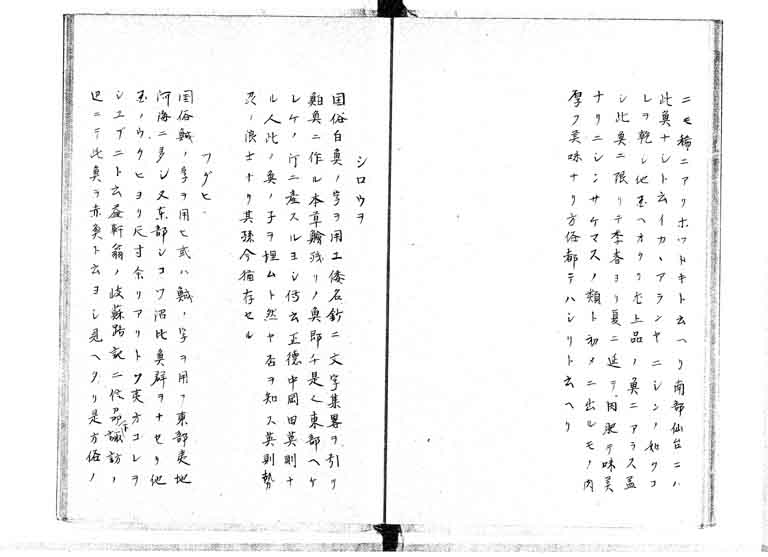 ニモ稀ニアリホツトキト云ヘリ南部仙台ニハ
此奥ナシト云イカヽアランヤニシンノ如クコ
レヲ乾シ他国ヘオクラス上品ノ魚ニアラス盖
シ此魚ニ限リテ季春ヨリ夏ニ延テ肉肥テ味美
ナリニシンサケマスノ類ト初メニ出ルモノ肉
厚ク美味ナリ方俗都テハシリト云ヘリ
シロウヲ
国俗白魚ノ字ヲ用エ倭名鈔ニ文字集畧ヲ引リ
魚ニ作ル本草鱠残リノ魚即チ是ヘ東部ヘケ
レケノ汀ニ産スルヨシ傳云正徳中岡田英則ナ
ル人此ノ魚ノ子ヲ埋ムト然ヤ否ヲ知ス英則勢
ノ浪士ナリ其孫今猶存セル
フグヒ
国俗鯎ノ字ヲ用ヒ或ハ鯎ノ字ヲ用フ東部夷地
河海ニ多シ又东部シコツ沼此魚群ヲナセリ他
国ノウクヒヨリ尺寸余リアリトソ夷方コレヲ
シユブニト云益軒翁ノ岐蘇路記ニ信州諏訪ノ
辺ニテ此魚ヲ赤魚ト云ヨシ見ヘタリ是方俗ノ